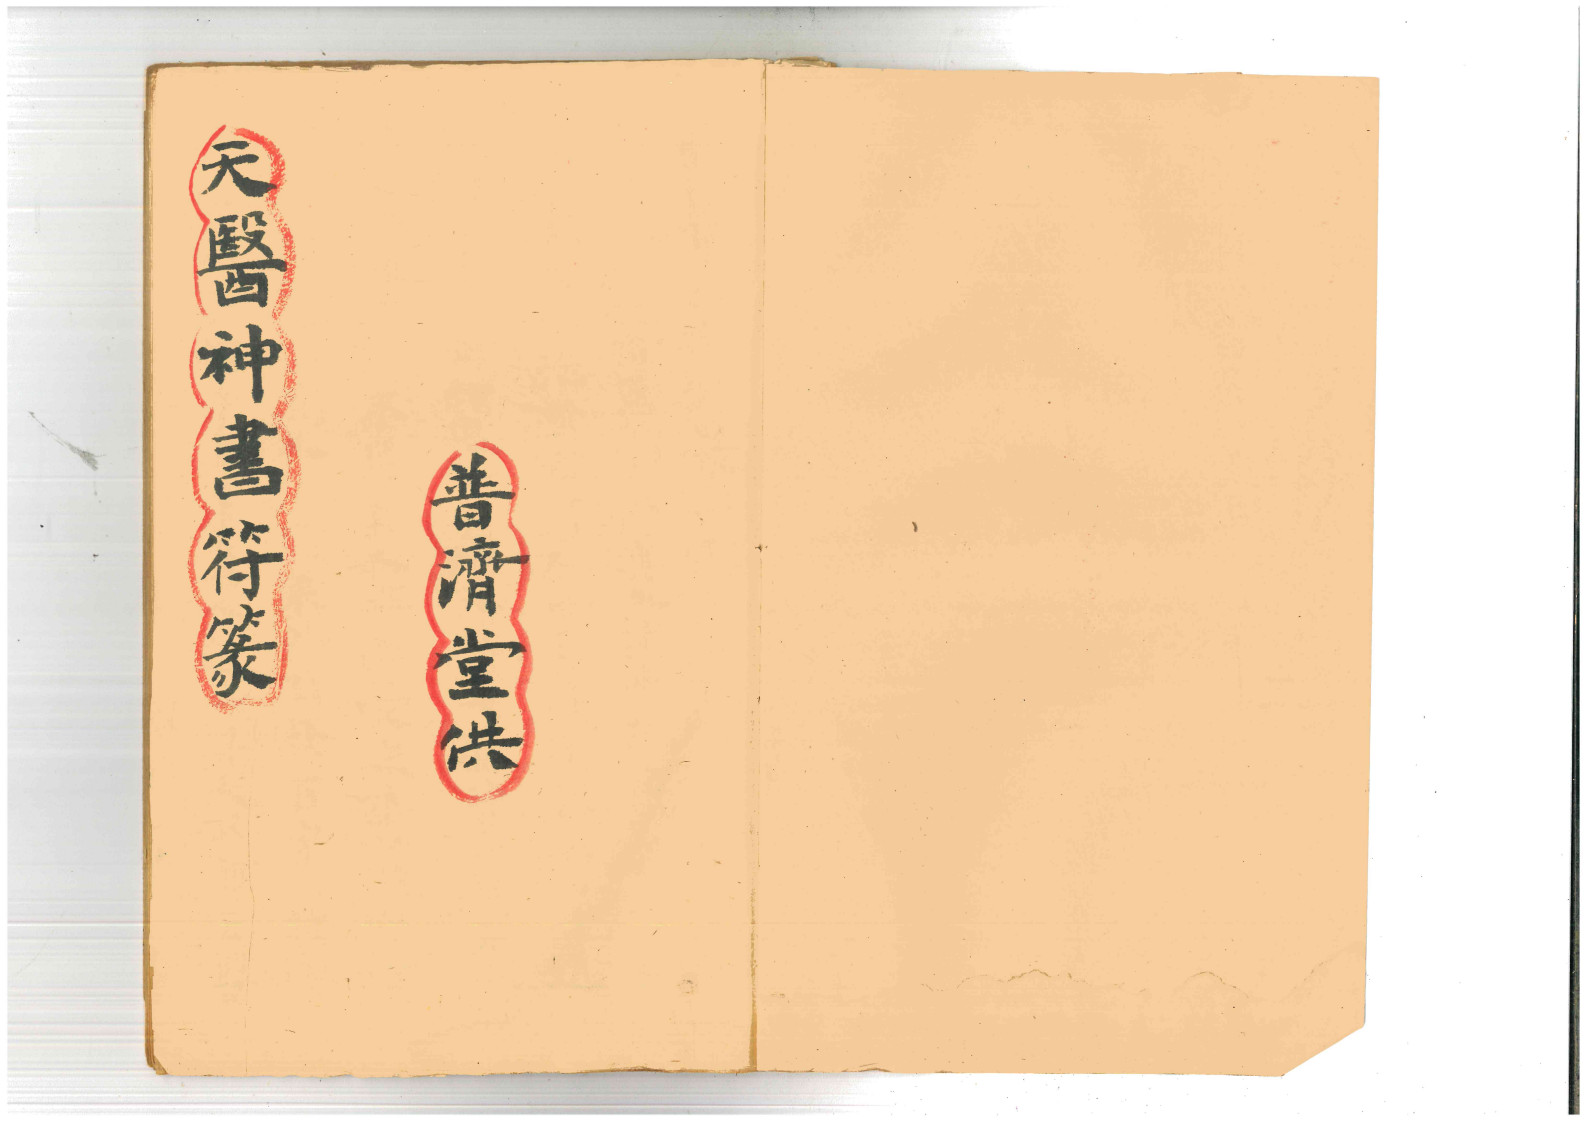 天醫神書符篆
普濟堂供